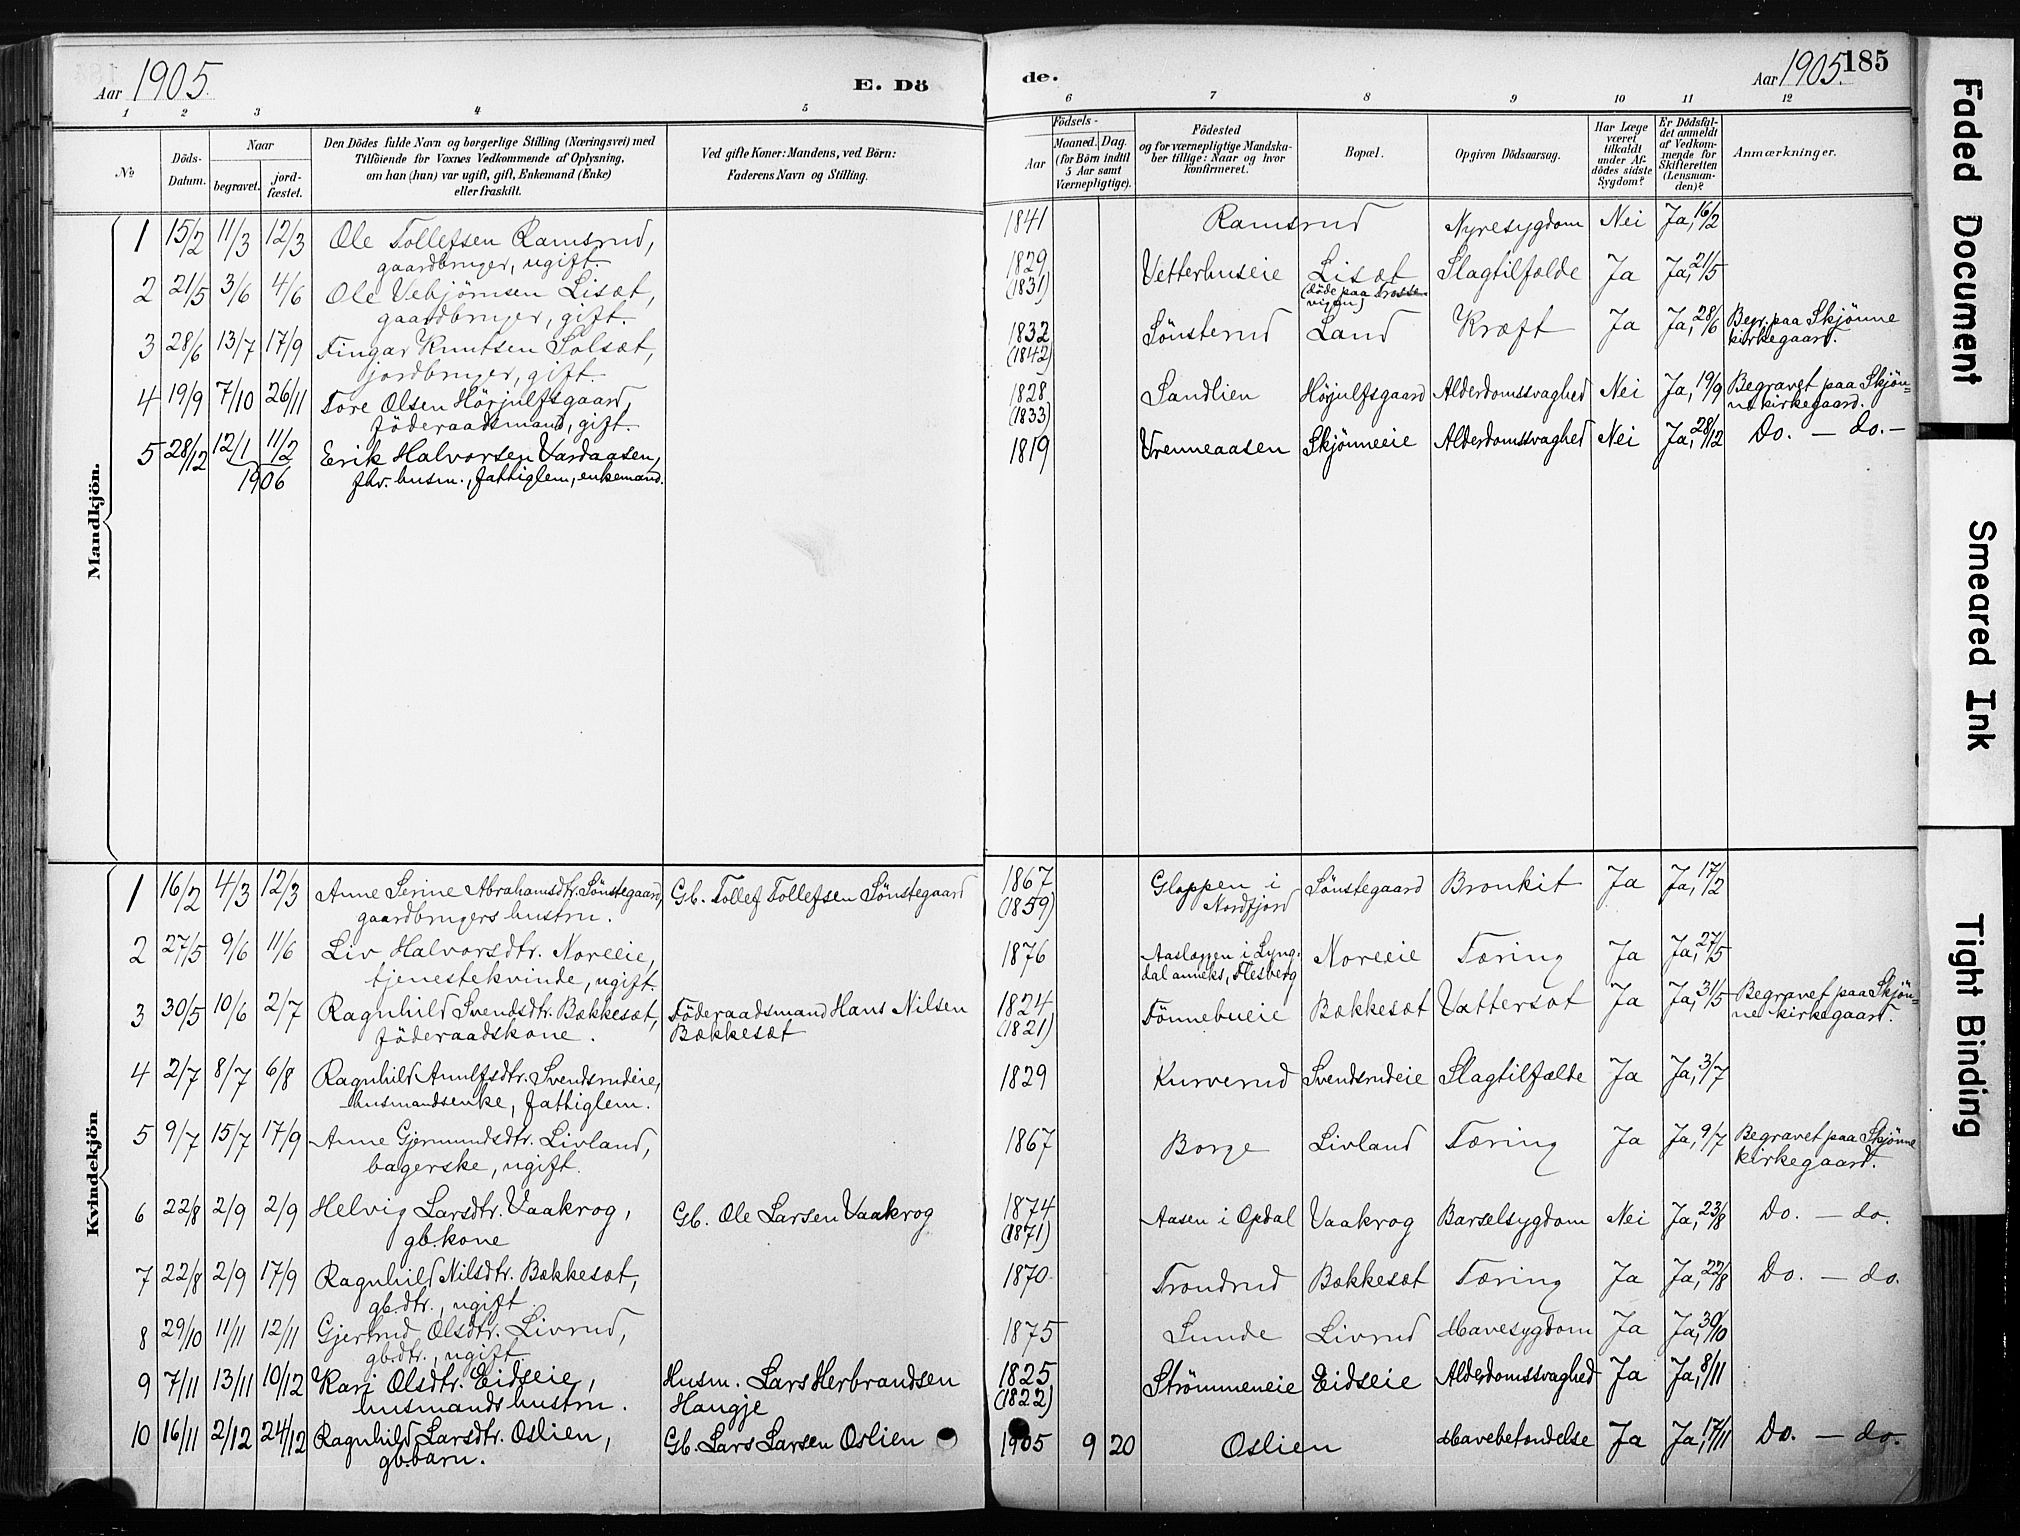 Aar 1905.
E. Dö
de.
Aar 1905.
185
1 2 3 4 5 6 7 8 9 10 11 12
№
Döds-Datum.
Naar
begravet.
jord-fæstet.
Den Dödes fulde Navn og borgerlige Stilling (Næringsvei) med
Tilföiende for Voxnes Vedkommende af Oplysning,
om han (hun) var ugift, gift, Enkemand (Enke)
eller fraskilt.
Ved gifte Koner: Mandens, ved Börn:
Faderens Navn og Stilling.
Födsels-
Aar
Maaned. Dag.
(for Börn indtil
5 Aar samt
Værnepligtige).
Födested
og for værnepligtige Mandska-
ber tillige: Naar og hvor
konfirmeret.
Bopæl.
Opgiven Dödsaarsag.
Har Læge
været
tilkaldt
under Af-
dödes sidste
Sygdom?
Er Dödsfal-
det anmeldt
af Vedkom-
mende for
Skifteretten
(Lensman-
den)?
Anmærkninger.
Mandkjön.
1 15/2 11/3 12/3 Ole Tollefsen Ramsrud, 1841 Ramsrud Nyresygdom Nei Ja, 16/2
gaardbruger, ugift.
2 21/5 3/6 4/6 Ole Vebjørnsen Lisæt, 1829 Vetterhuseie Lisæt Slagtilfælde Ja Ja, 21/5
gaardbruger, gift. (1831) (døde paa Frosse-
vigen)
3 28/6 13/7 17/9 Fingar Knutsen Solsæt, 1832 Sønsterud Land Kræft Ja Ja, 28/6 Begr. paa Skjønne
jordbruger, gift. (1842) kirkegaard.
4 19/9 7/10 26/11 Tore Olsen Hörjulfsgaard, 1828 Sandlien Höjulfsgaard Alderdomssvaghed Nei Ja, 19/9 Begravet paa Skjön=
föderaadsmand, gift. (1833) ne kirkegaard.
5 28/12 12/1 11/2 Erik Halvorsen Vardaasen, 1819 Vrenneaasen Skjönneeie Alderdomssvaghed Nei Ja, 28/12 Do. – do. –
1906 fhv. husm., fattiglem, enkemand.
Kvindekjön
1 16/2 4/3 12/3 Anne Serine Abrahamsdtr. Sönstegaard, Gb. Tollef Tollefsen Sönstegaard 1867 Gloppen i Sönstegaard Bronkit Ja Ja, 17/2
gaardbrugers hustru. (1859) Nordfjord
2 27/5 9/6 11/6 Liv Halvorsdtr. Noreeie, 1876 Aasleggen i Lyng- Noreeie Tæring Ja Ja, 27/5
tjenestekvinde, ugift. dal anneks, Flesberg
3 30/5 10/6 2/7 Ragnhild Svendsdtr. Bækkesæt, Föderaadsmand Hans Nilsen 1824 Tönnebueie Bækkesæt Vattersot Ja Ja, 31/5 Begravet paa Skjön=
föderaadskone. Bækkesæt (1821) ne kirkegaard.
4 2/7 8/7 6/8 Ragnhild Arnulfsdtr. Svendsrudeie, 1829 Kurverud Svendsrudeie Slagtilfælde Ja Ja, 3/7
husmandsenke, fattiglem.
5 9/7 15/7 17/9 Anne Gjermundsdtr. Livland, 1867 Borge Livland Tæring Ja Ja, 9/7 Begravet paa Skjönne
bagerske, ugift. kirkegaard.
6 22/8 2/9 2/9 Helvig Larsdtr. Vaakrog, Gb. Ole Larsen Vaakrog 1874 Aasen i Opdal Vaakrog Barselsygdom Nei Ja, 23/8 Do. – do.
gb.kone (1871)
7 22/8 2/9 17/9 Ragnhild Nilsdtr. Bækkesæt, 1870 Trondrud Bækkesæt Tæring Ja Ja, 22/8 Do. – do.
gb.dtr., ugift.
8 29/10 11/11 12/11 Gjertrud Olsdtr. Livrud, 1875 Lunde Livrud Mavesygdom Ja Ja, 30/10
gb.dtr., ugift.
9 7/11 13/11 10/12 Kari Olsdtr. Eidseie, Husm. Lars Herbrandsen 1825 Strömmeneie Eidseie Alderdomssvaghed Ja Ja, 8/11
husmandshustru. Haugje (1822)
10 16/11 2/12 24/12 Ragnhild Larsdtr. Oslien, Gb. Lars Larsen Oslien 1905 9 20 Oslien Mavebetændelse Ja Ja, 17/11 Do. – do.
gb.barn.
Faded Document
Smeared Ink
Tight Binding